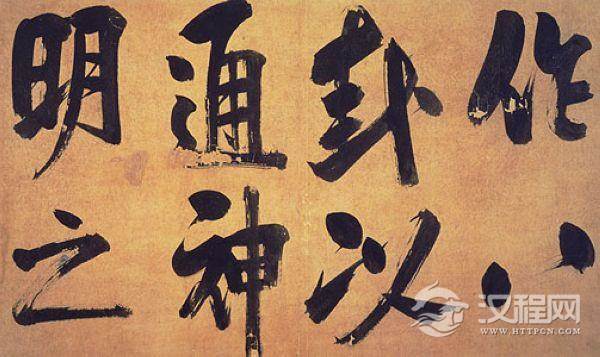 作八
卦以
通神
明之
汉程网
WWW.HTTPCN.COM